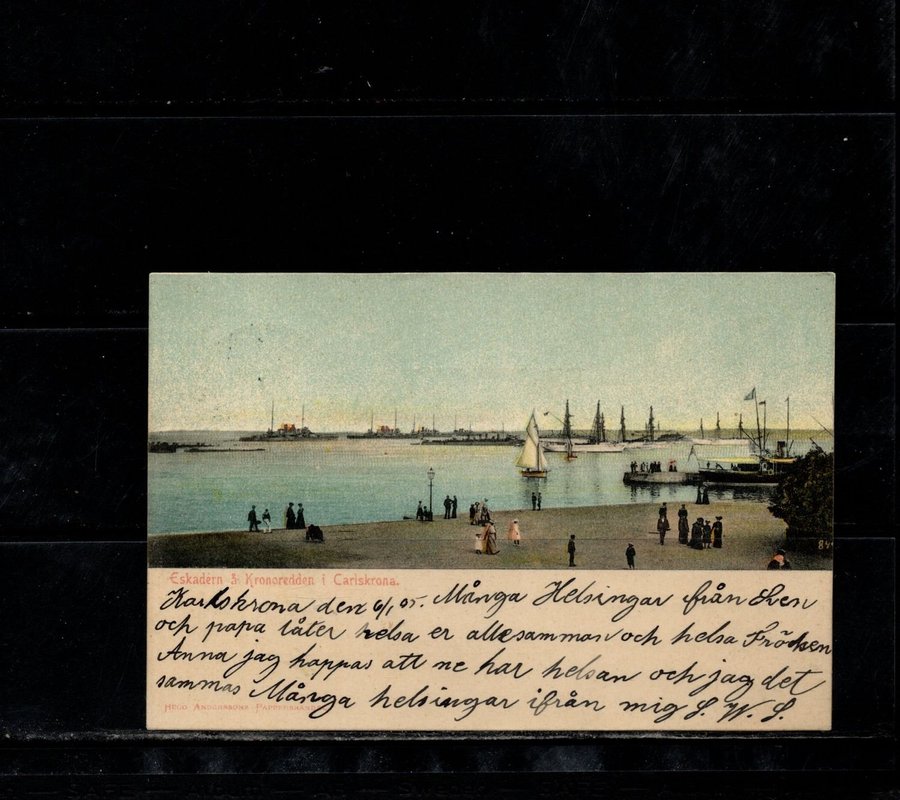 Eskadern å Kronoredden i Carlskrona.
Karlskrona den 6/1 05. Många Helsingar från Sven
och papa låter helsa er allesammans och helsa Fröcken
Anna jag happas att ne har helsan och jag det
sammas Många helsingar ifrån mig S. W. S.
Hugo Anderssons Pappershandel